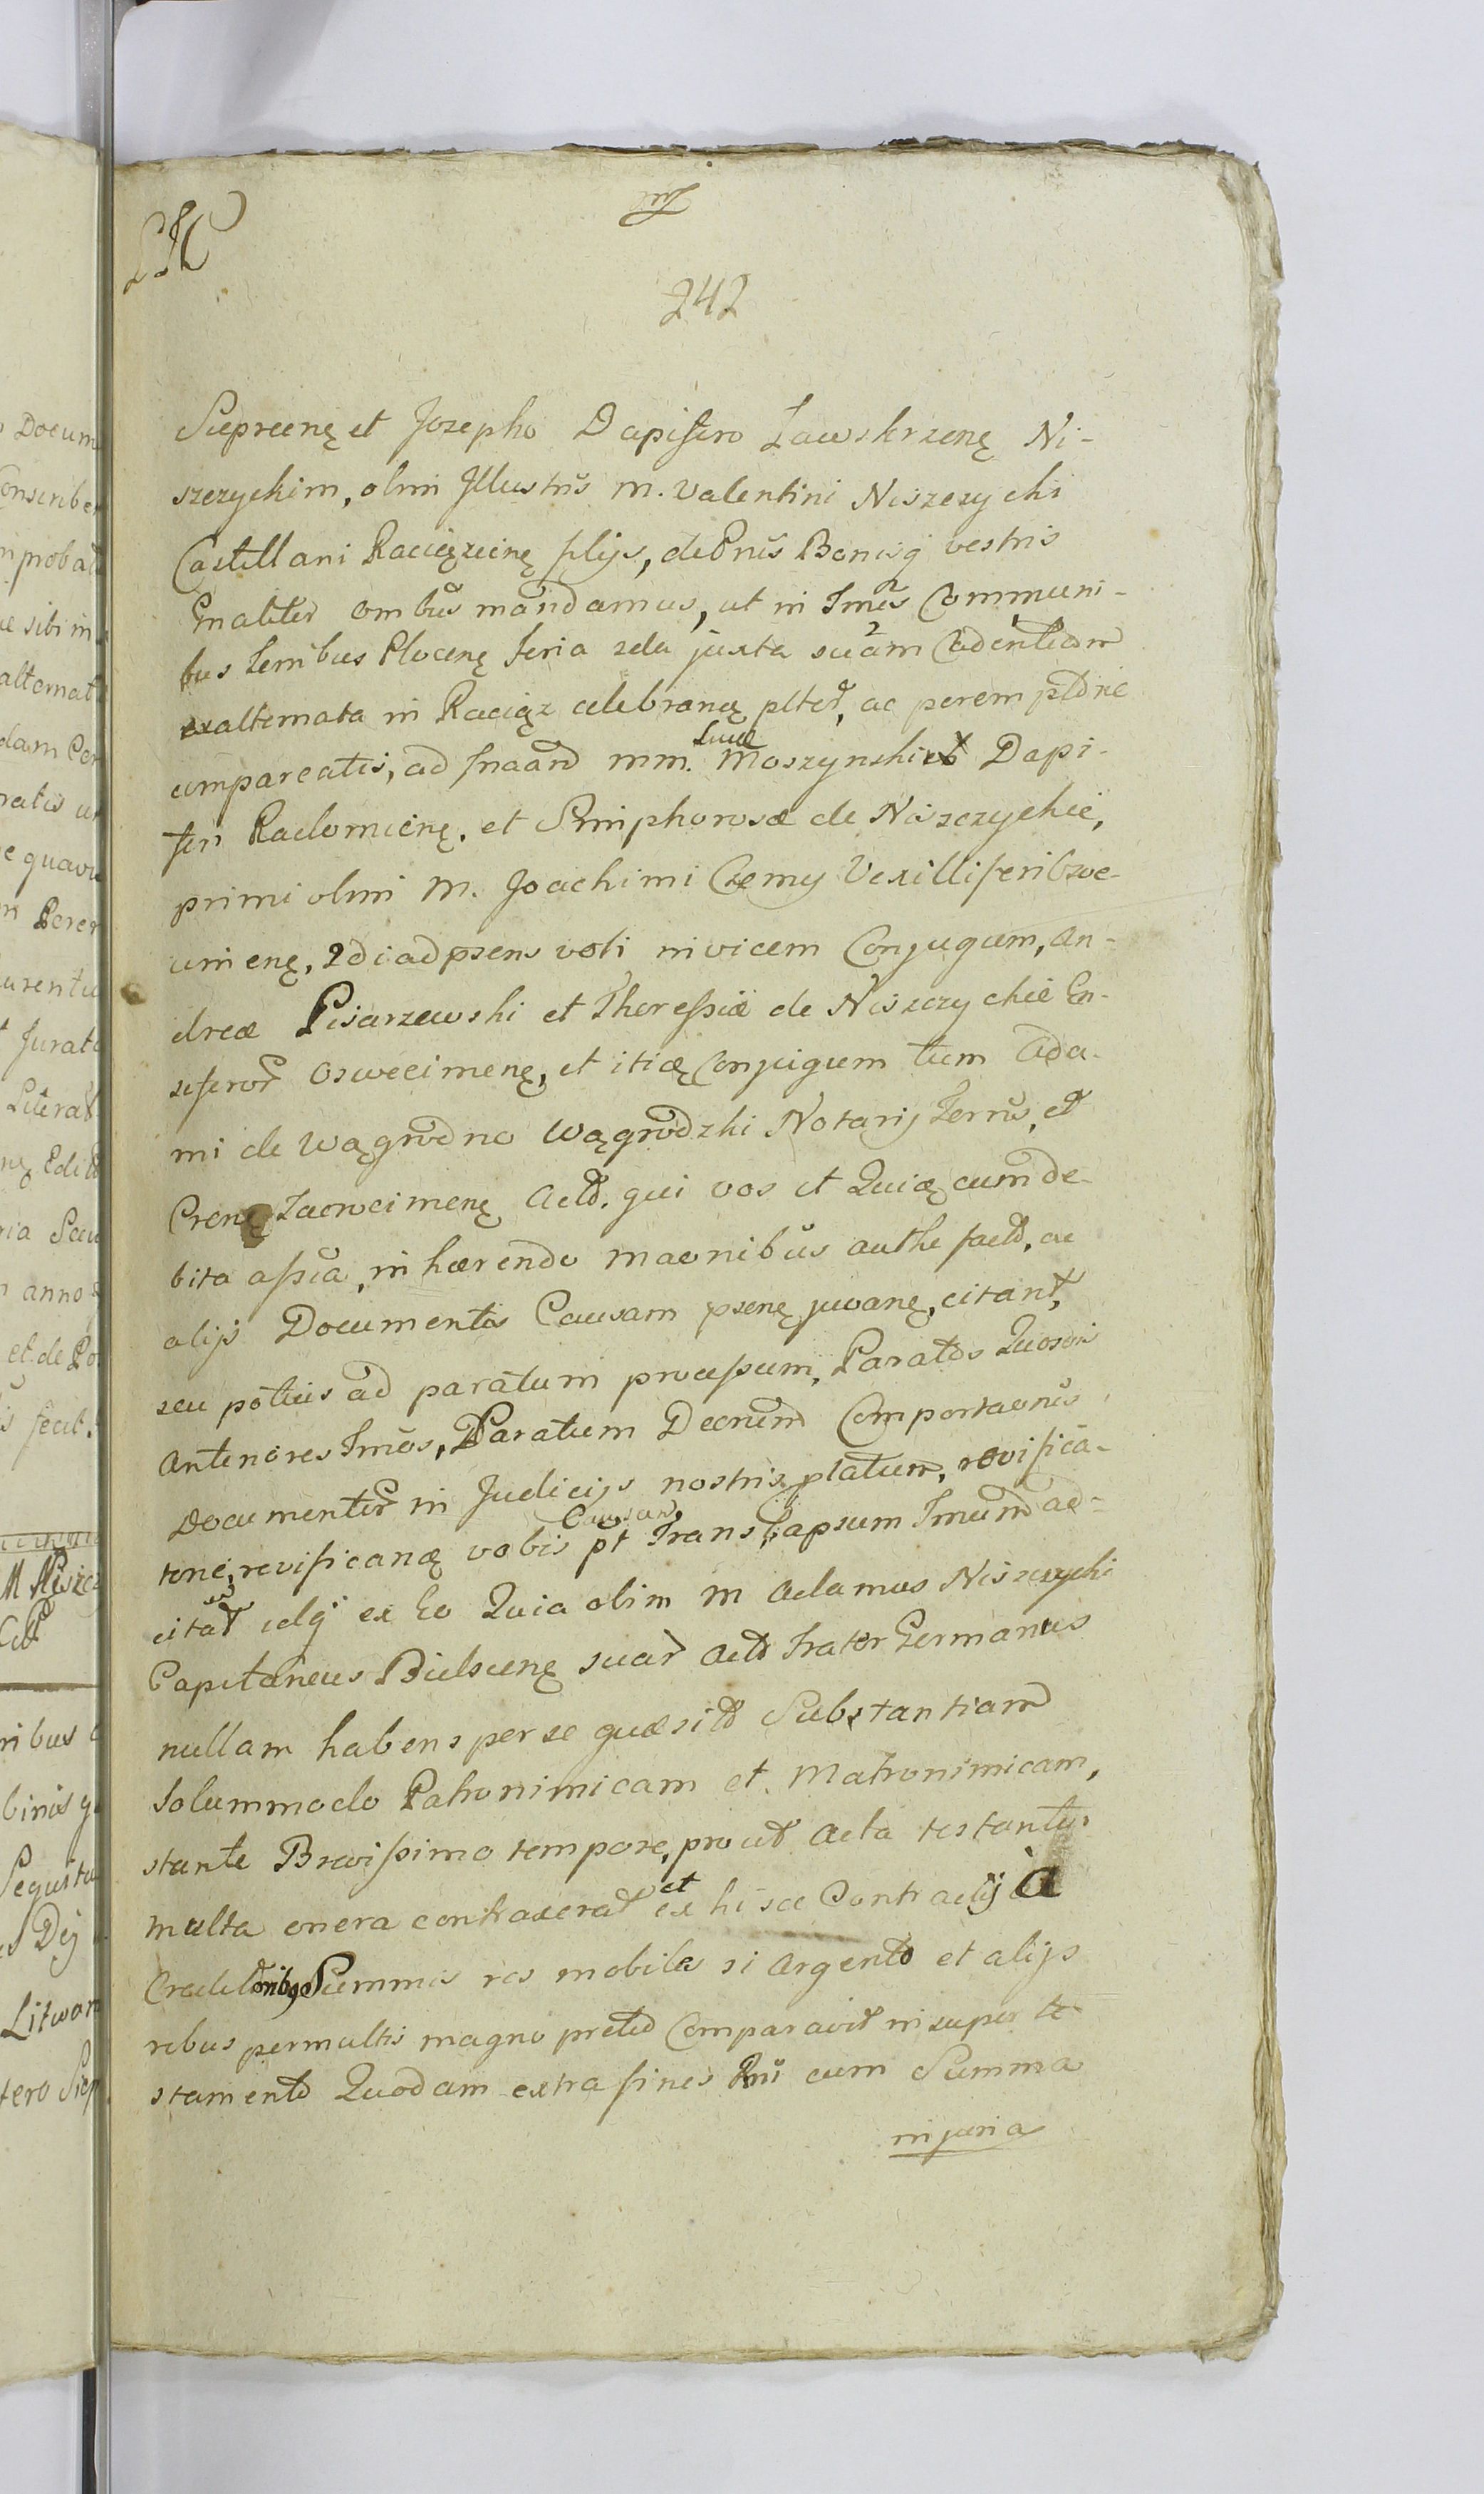 242
Sieprcenę et Josepho Dapifero Zawskrzenę Ni-
szczyckim, olim Illustris M. Valentini Niszczycki
Castellani Raciązcinę filijs, de Bonisq vestris
Gnaliter omnbus mandamus, ut in Tmis Communi-
bus Terribus Plocenę feria 2da juxta suam Cadentiam
exalternata in Raciąz celebranę pltēr, ac peremptōrie
compareatis, ad Jnaam MM. Lucæ Moszynski Dapi-
feri Radomienę, et Simphorosæ de Niszczyckie,
primi olim M. Joachimi Czerny Vexilliferi Owie-
cimenę, 2di ad præsens voti invicem Conjugum, An-
dreæ Pisarzewski et Theressiæ de Niszczyckie En-
siferor Oswecimenę, et itię Conjugum tum Ada-
mi de Wągrodno Wągrodzki Notarij Terris, et
Crenę Zacrocimenę Actō. qui vos et Quię cum de-
bita assia, inhærendo maonibus authe factō, ac
alijs Documentis Causam psenę juvanę, citant,
seu potius ad paratum processum, Paratos Quosvis
Anteriores Tmos, Paratum Decretum Comportaonis
Documentor in Judicijs nostris platum, revifica-
tone, revificanę vobis pt Causam Translapsum Tmum ad-
citat idq ex Eo Quia olim M Adamus Niszczycki
Capitaneus Bielscenę suar Actō frater Germanus
nullam habens per se quæsitō Substantiam
solummodo Patronimicam et Matronimicam,
stante Brevissimo tempore, prout Acta testantur
multa onera contraxerat et ex hisce Contractij a
Creditoribus Summis res mobiles si Argento et alijs
rebus permultis magno pretio Comparavit insuper te-
stamento Quodam extra fines Rni cum Summa
injuria